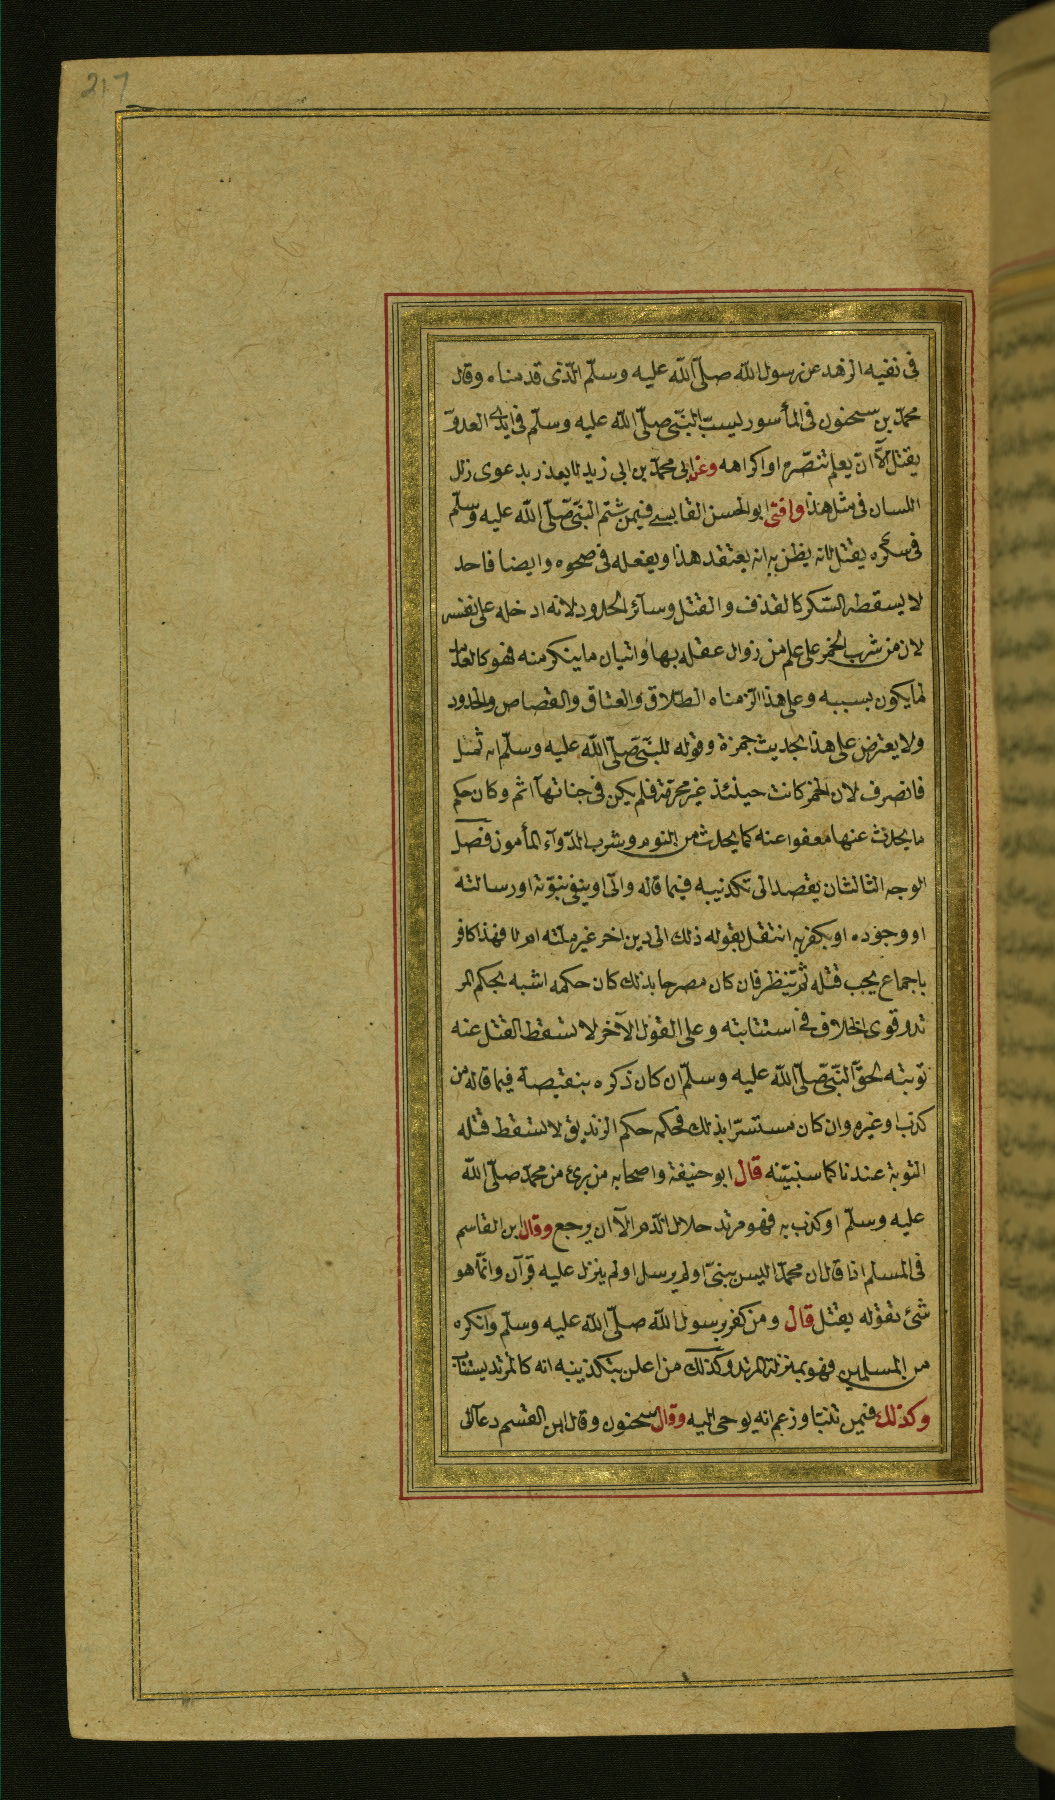 217
فى نفيه الزهد عن رسول الله صلّى الله عليه وسلّم الّذى قدمناه وقال
محمّد بن سحنون فى المأسور ليسبّ النّبىّ صلّى الله عليه وسلّم فى ايدى العدوّ
يقتل الّا ان يعلم تنصّره او اكراهه وعن ابى محمّد بن ابى زيد لا يعذر بدعوى زلل
اللسان فى مثل هذا وافتى ابو الحسن القابسى فيمن شتم النّبىّ صلّى الله عليه وسلّم
فى سكره يقتل لانه يظن به انه يعتقد هذا ويفعله فى صحوه وايضا فاحد
لا يسقطه السّكر كالقذف والقتل وسآئر الحدود لانه ادخله على نفسه
لان من شرب الخمر على علم من زوال عقله بها واتيان ما ينكر منه فهو كالعامد
لما يكون بسببه وعلى هذا الزمناه الطّلاق والعتاق والقصاص والحدود
ولا يعترض على هذا بحديث حمزة وقوله للنّبىّ صلّى الله عليه وسلّم انه ثمل
فانصرف لان الخمر كانت حينئذ غير محرّمة فلم يكن فى جناتها اثم وكان حكم
ما يحدث عنها معفوا عنه كما يحدث من النوم وشرب الدّوآء المأمون فصل
الوجه الثالث ان يقصد الى تكذيبه فيما قاله واتى او ينفى نبوّته او رسالته
او وجوده او يكفر به انتقل بقوله ذلك الى دين اخر غير ملّته ام لا فهذا كافر
باجماع يجب قتله ثمّ ينظر فان كان مصرحا بذلك كان حكمه اشبه بحكم المر
تد وقوى الخلاف فى استتابته وعلى القول الآخر لا تسقط القتل عنه
توبته لحقّ النّبىّ صلّى الله عليه وسلّم ان كان ذكره بنقيصة فيما قاله من
كذب او غيره وان كان مستسرّا بذلك فحكمه حكم الزنديق لا تسقط قتله
التوبة عندنا كما سنبيّنه قال ابو حنيفة واصحابه من برئ من محمّد صلّى الله
عليه وسلّم او كذب به فهو مرتد حلال الدّم الّا ان يرجع وقال ابن القاسم
فى المسلم اذا قال ان محمّدا ليس بنبىّ او لم يرسل او لم ينزل عليه قرآن وانّما هو
شئ تقوّله يقتل قال ومن كفر برسول الله صلّى الله عليه وسلّم وانكره
من المسلمين فهو بمنزلة المرتد وكذلك من اعلن بتكذيبه انه كالمرتد يستتاب
وكذلك فيمن تنبّا وزعم انه يوحى اليه وقال سحنون وقال ابن القسم دعا الى